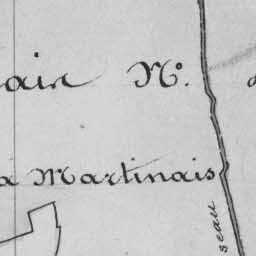 air N°.
a Martinais
seau